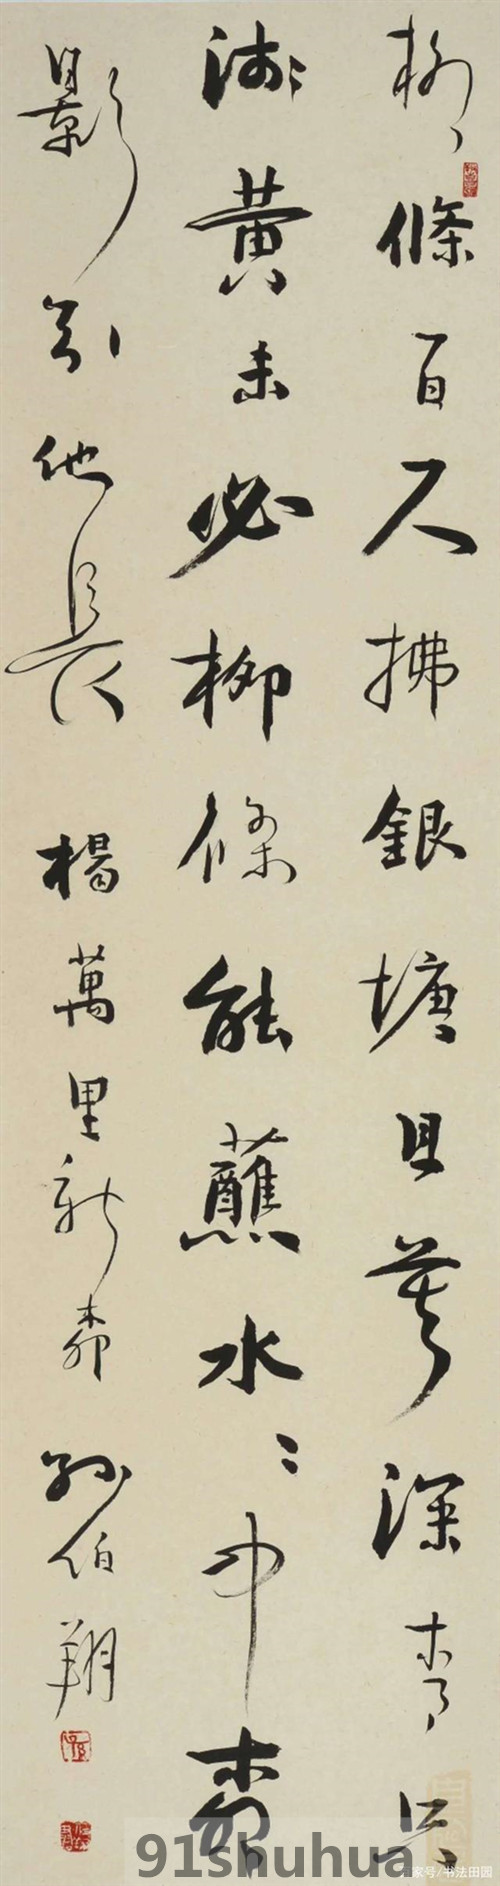 柳條百尺拂銀塘且莫深青只
淺黃未必柳條能蘸水〻中柳
影引他長 楊萬里新柳 孫伯翔
91shuhua
家号/书法田园